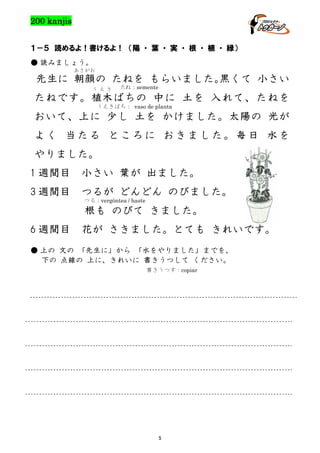 200 kanjis
１－５ 読めるよ！書けるよ！（ 陽 ・ 葉 ・ 実 ・ 根 ・ 植 ・ 緑 ）
● 読みましょう。
あさがお
先生に 朝顔の たねを もらいました。黒くて 小さい
うえき たね：semente
たねです。植木ばちの 中に 土を 入れて、たねを
うえきばち： vaso de planta
おいて、上に 少し 土を かけました。太陽の 光が
よく 当たる ところに おきました。毎日 水を
やりました。
1 週間目 小さい 葉が 出ました。
3 週間目 つるが どんどん のびました。
つる：vergôntea / haste
根も のびて きました。
6 週間目 花が さきました。とても きれいです。
● 上の 文の 「先生に」から 「水をやりました」までを、
下の 点線の 上に、きれいに 書きうつして ください。
書きうつす：copiar
5